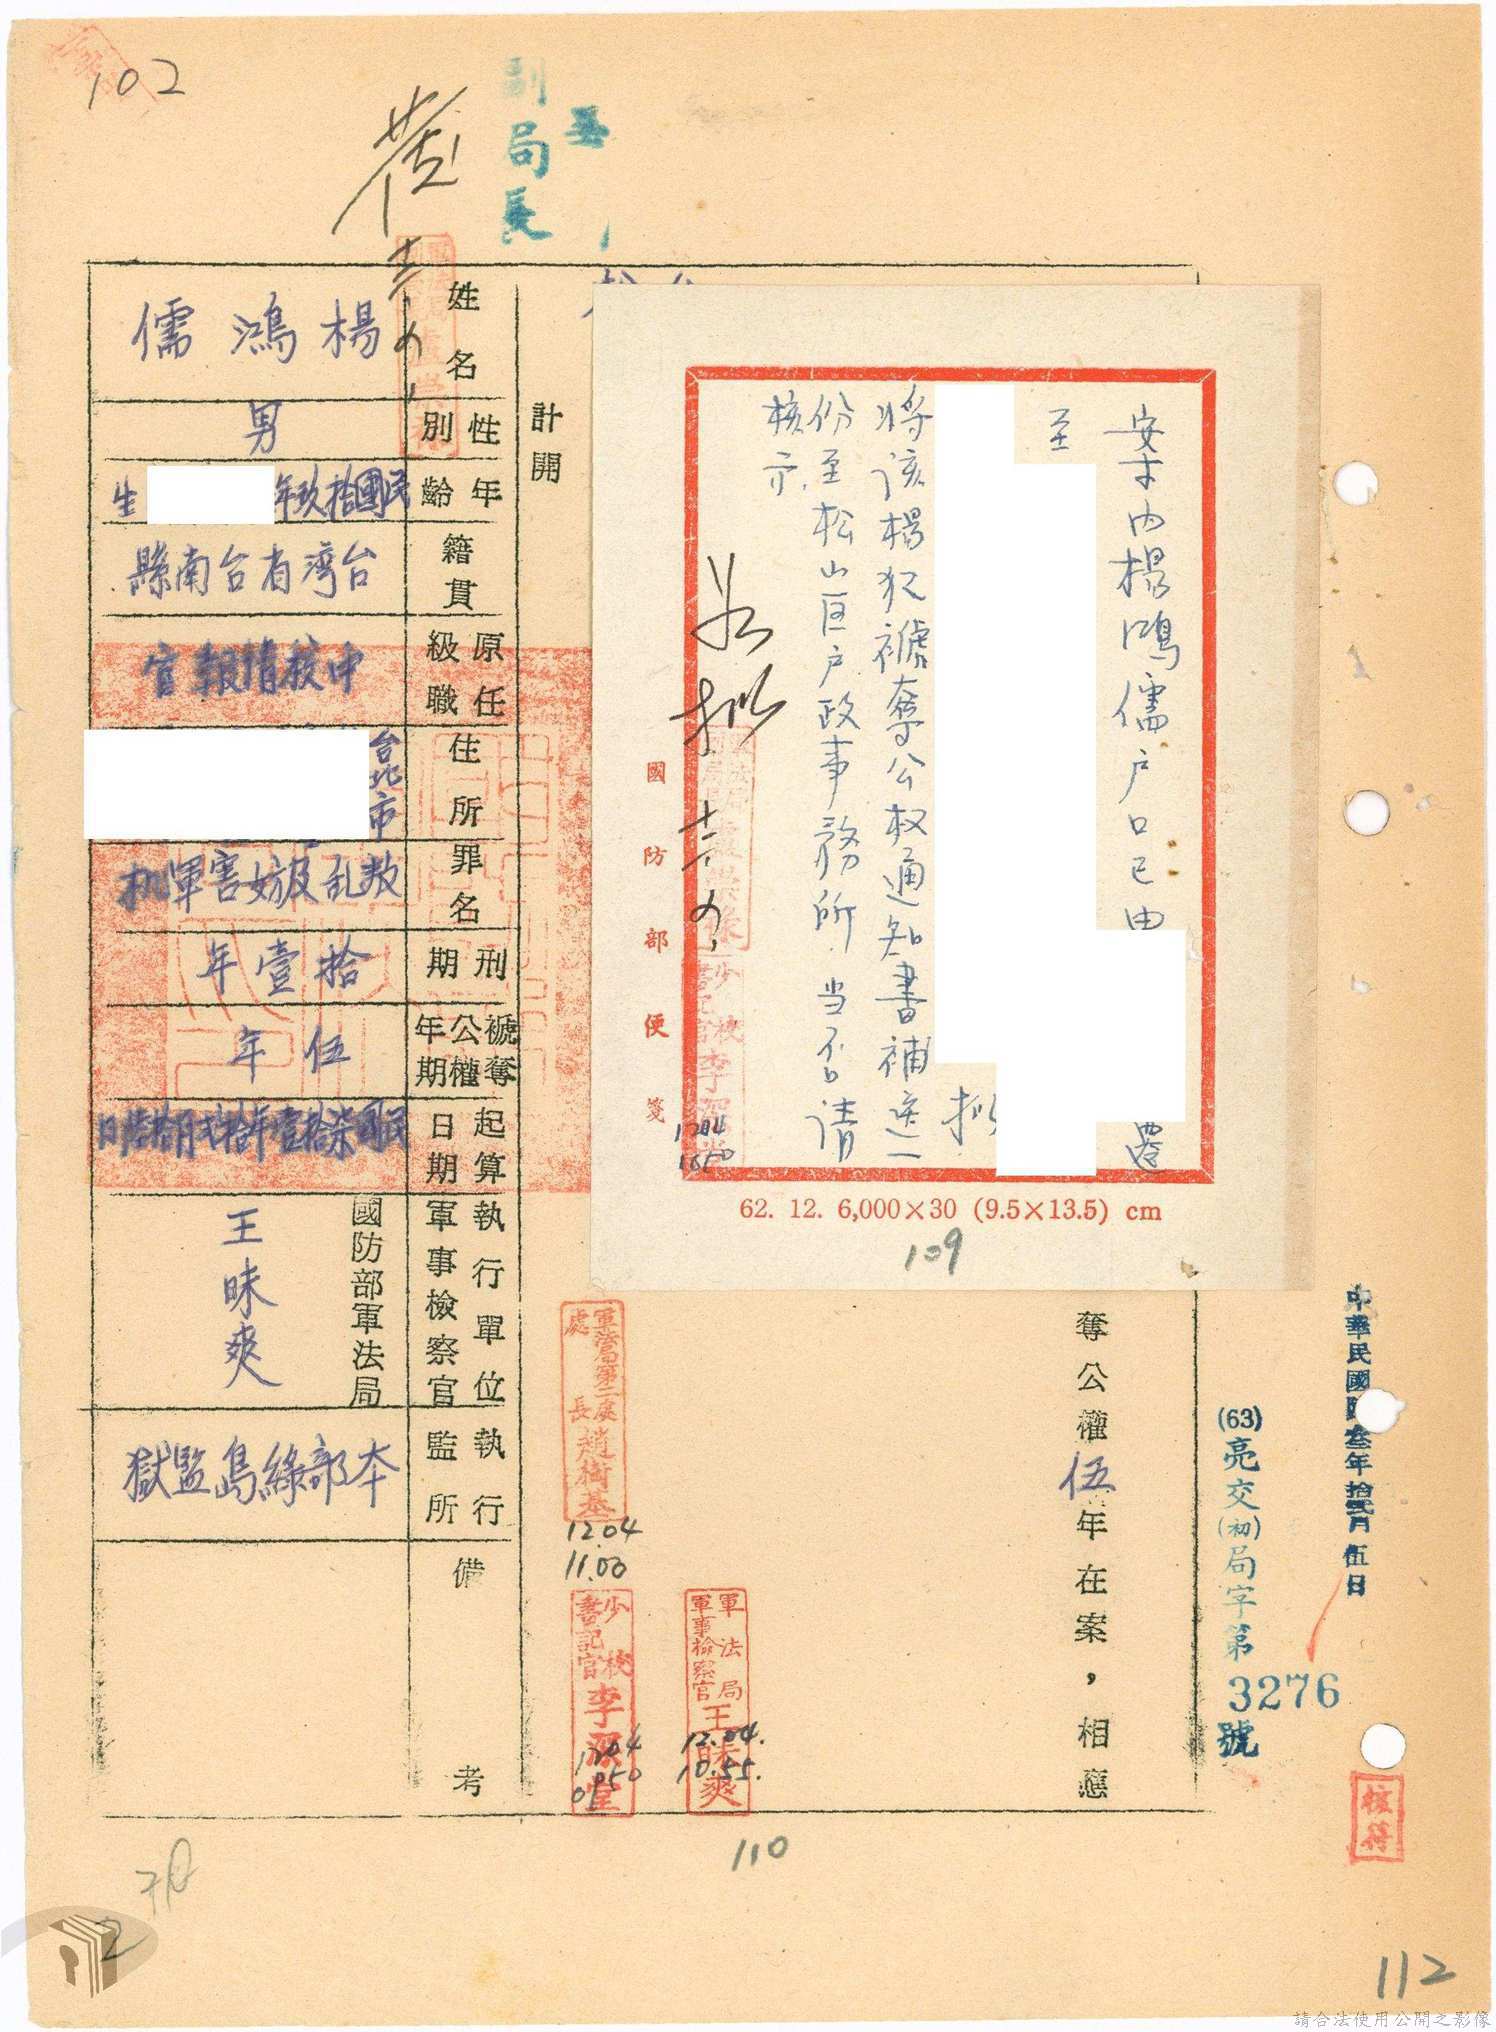 102
副局長
姓名
楊鴻儒
性別
男
年齡
民國拾玖年
生
籍貫
台灣省台南縣
原任級職
中校情報官
住所
台北市
罪名
叛乱及妨害軍机
刑期
拾壹年
褫奪公權年期
伍年
起算日期
民國陸拾壹年拾弍月拾陸日
執行單位軍事檢察官
國防部軍法局
王昧爽
執行監所
本部綠島監獄
備考
計開
案內楊鴻儒戶口已由
遷
至
擬
將該楊犯褫奪公權通知書補送一
份至松山區戶政事務所.当否请
核示.
如擬
十二、
國防部便箋
1204
1050
62. 12. 6,000×30 (9.5×13.5) cm
109
奪公權伍年在案，相應
軍法局第二處處長趙樹基
12.04
11.00
少校書記官李源堂
1204
1050
軍法局軍事檢察官王昧爽
12.04.
10.55.
中華民國陸叁年拾弍月伍日
(63)亮交(初)局字第3276號
110
2
112
請合法使用公開之影像